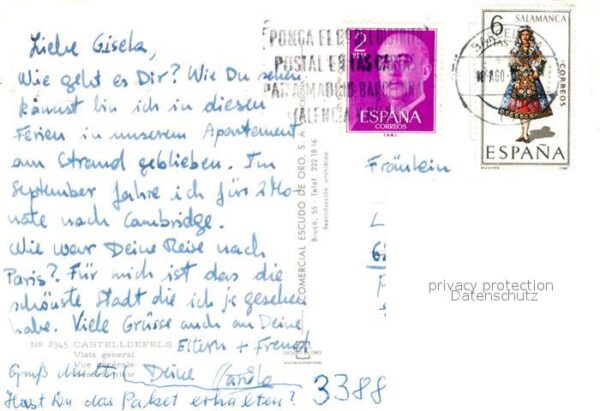 Liebe Gisela,
Wie geht es Dir? Wie Du sehen
kannst bin ich in diesen
Ferien in unserem Apartement
am Strand geblieben. Im
September fahre ich für 2 Mo-
nate nach Cambridge.
Wie war Deine Reise nach
Paris? Für mich ist das die
schönste Stadt die ich je gesehen
habe. Viele Grüsse auch an Deine
Eltern + Freund
Deine
Hast Du das Paket erhalten?
3388
Nº 2345 CASTELLDEFELS
Vista general
Vue générale
COMERCIAL ESCUDO DE ORO, S. A.
Bruch, 55 - Teléf. 222 78 16
Reproducción prohibida
PONGA EL DISTRITO
POSTAL EN LAS CARTAS
PARA MADRID BARCELONA
VALENCIA
2
PTAS
ESPAÑA
CORREOS
6
PTAS
SALAMANCA
CORREOS
ESPAÑA
Fräulein
privacy protection
Datenschutz